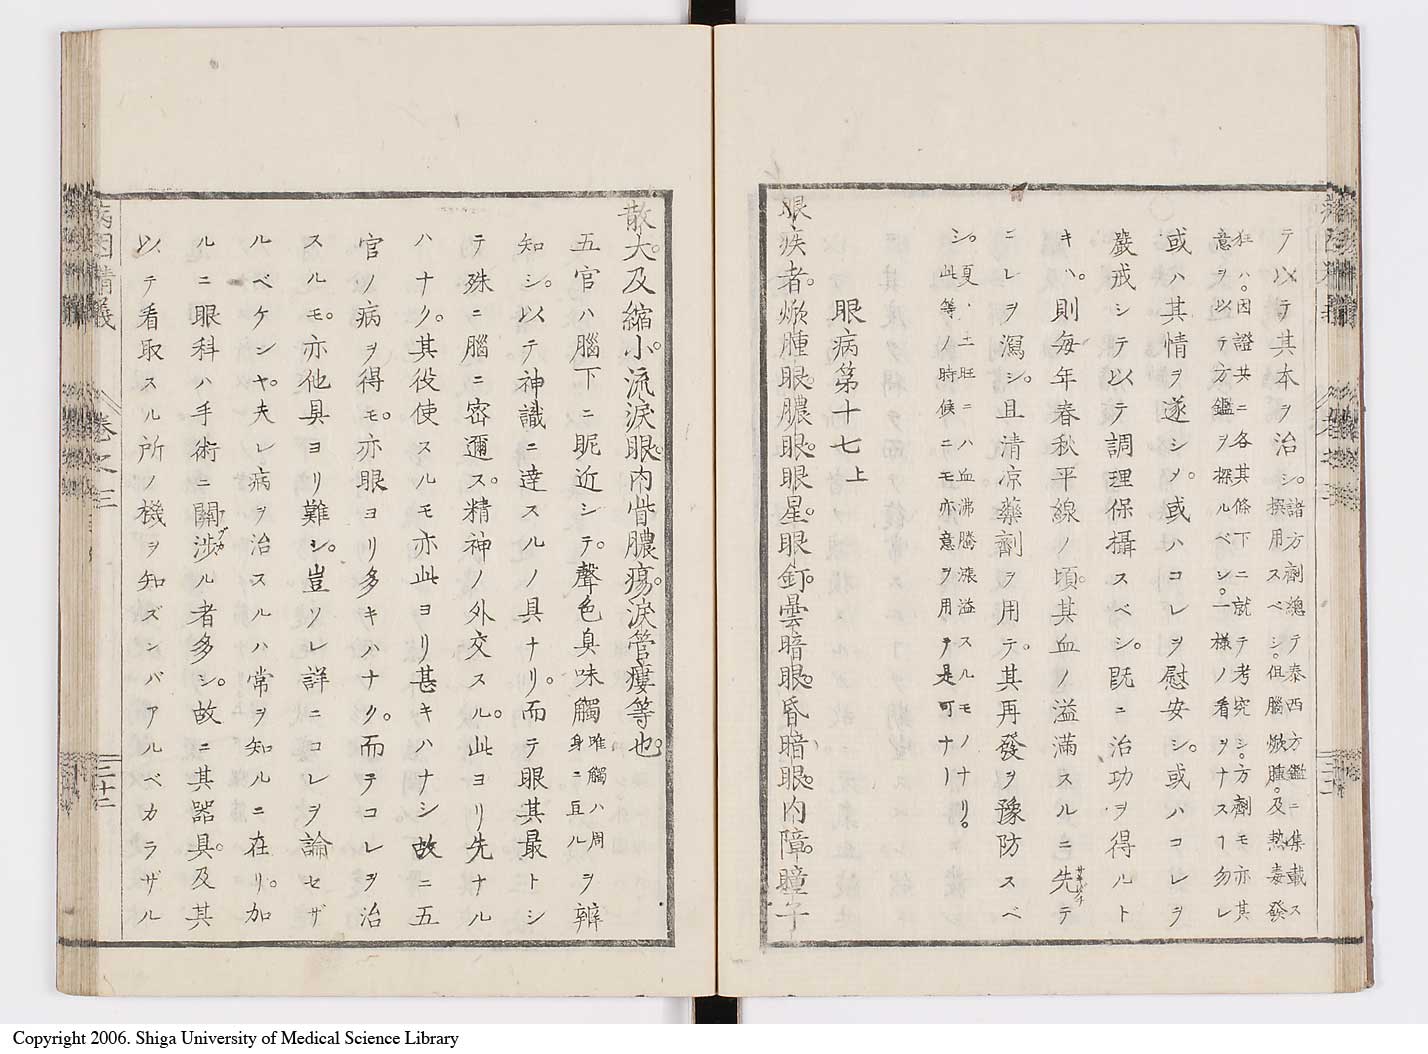 テ以テ其本ヲ治シ。諸方劑總テ泰西方鑑ニ集載ス
撰用スベシ。但腦焮腫。及熱毒發
狂ハ。因證共ニ各其條下ニ就テ考究シ。方劑モ亦其
意ヲ以テ方鑑ヲ探ルベシ。一樣ノ看ヲナスヿ勿レ
或ハ其情ヲ遂シメ。或ハコレヲ慰安シ。或ハコレヲ
嚴戒シテ以テ調理保攝スベシ。既ニ治功ヲ得ルト
キハ。則每年春秋平線ノ頃。其血ノ溢滿スルニ先テ
コレヲ瀉シ。且清凉藥劑ヲ用テ。其再發ヲ豫防スベ
シ。夏ノ土旺ニハ血沸騰漲溢スルモノナリ。
此等ノ時候ニテモ亦意ヲ用ヲ是可ナリ
眼病第十七上
眼疾者。焮腫眼。膿眼。眼星。眼釘。曇暗眼。昏暗眼。內障。瞳子
散大。及縮小。流淚眼。內眥膿瘍。淚管瘻等也。
五官ハ腦下ニ昵近シテ。聲色臭味觸 唯觸ハ周身ニ亘ル ヲ辨
知シ。以テ神識ニ達スルノ具ナリ。而テ眼其最トシ
テ殊ニ腦ニ密邇ス。精神ノ外交スル。此ヨリ先ナル
ハナク。其役使スルモ亦此ヨリ甚キハナシ故ニ五
官ノ病ヲ得モ。亦眼ヨリ多キハナク。而テコレヲ治
スルモ。亦他具ヨリ難シ。豈ソレ詳ニコレヲ論セザ
ルベケンヤ。夫レ病ヲ治スルハ常ヲ知ルニ在リ。加
ルニ眼科ハ手術ニ關涉ル者多シ。故ニ其器具。及其
以テ看取スル所ノ機ヲ知ズンバアルベカラザル
病因精義
卷之三
三十二
Copyright 2006. Shiga University of Medical Science Library